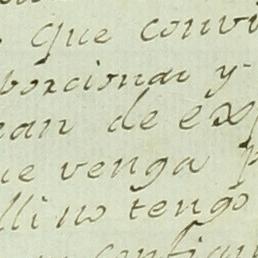 que convi
porcionar y
ran de exp
ue venga p
lli no tengo